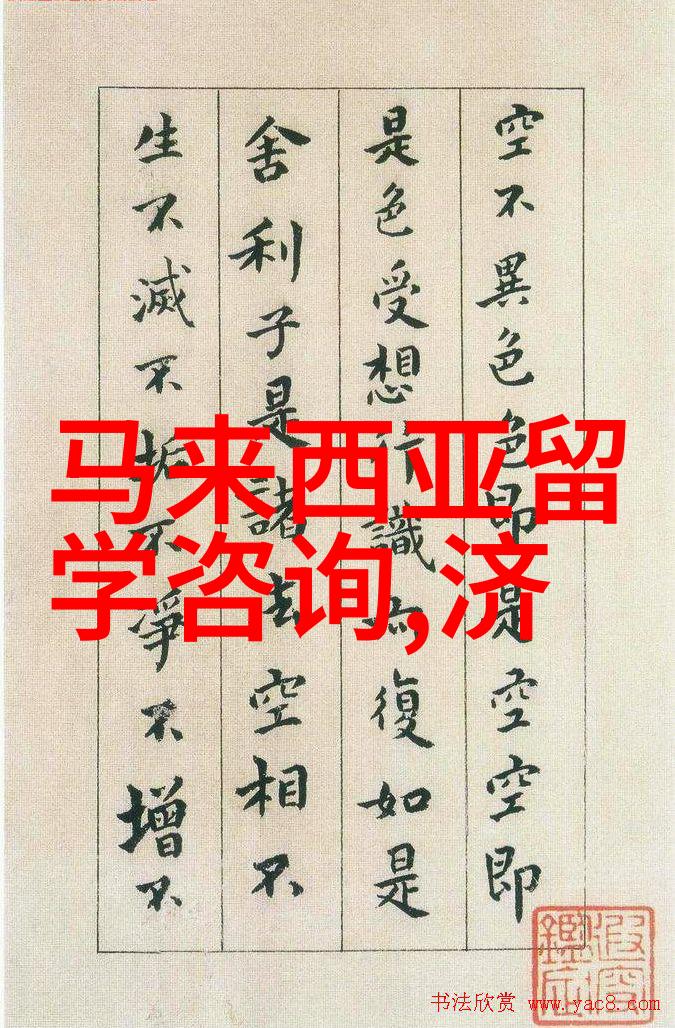 空不異色色即是空空即
是色受想行識亦復如是
舍利子是諸法空相不
生不滅不垢不淨不增不
马来西亚留
学咨询,济
书法欣赏 www.yac8.com